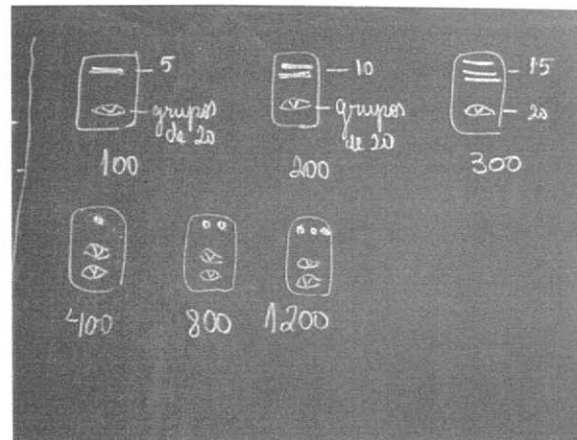 5
grupos
de 20
100
10
grupos
de 20
200
15
20
300
400
800
1200